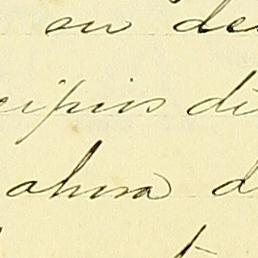 su de
cipios di
ahora d